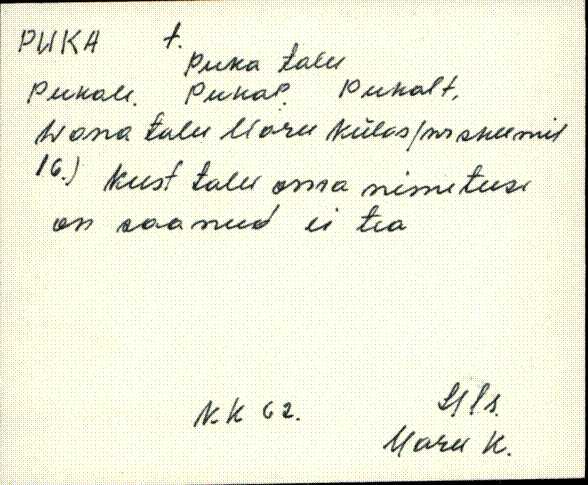 PUKA t.
Puka talu
Pukale. Pukal. Pukalt.
Wana talu Uoru Külas/nr skeemil
16.) Kust talu oma nimetuse
on saanud ei tea
N.K 62. Hls.
Uoru K.